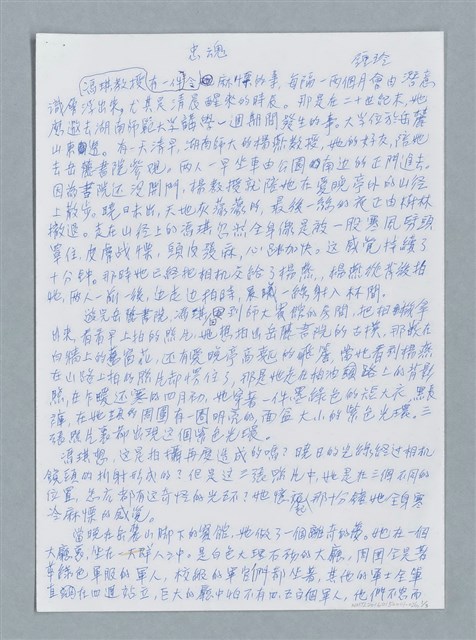 忠魂
鍾玲
馮琪教授有一個令麻慄的事,每隔一兩個月會由潛意
識層浮出來,尤其是清晨醒來的時辰。那是在二十世紀末,她
應邀去湖南師範大学講學一週期間發生的事。大学位於岳麓
山東邊。有一天清早,湖南師大的楊燕教授,她的好友,陪她
去岳麓書院參观。两人一早坐車由公園南边的正門進去。
因為書院还沒開門,楊教授就陪她在愛晚亭外的山徑
上散步。曉日未出,天地灰蒙蒙的,最後一絲的夜正由樹林
撤退。走在山徑上的馮琪忽然全身像是被一股寒風劈頭
罩住,皮膚战慄,頭皮發麻,心跳加快。这感覺持續了
十分钟。那時她已經把相机交給了楊燕,楊燕就在後拍
她,两人一前一後,边走边拍時,晨曦一絲射入林間。
遊完岳麓書院,馮琪回到師大賓館的房間,把相機拿
出來,看看早上拍的照片,她想拍出岳麓書院的古樸,那襯在
白牆上的舊窗花,还有愛晚亭高起的飛簷,當她看到楊燕
在山路上拍的照片却楞住了,那是她走在柏油頭路上的背影
照,在乍暖还寒的四月初,她穿著一件墨绿色的短大衣,黑長
褲,在她頭的周圍有一圈明亮的、面盆大小的紫色光環。三
張照片裏都出現这個紫色光環。
馮琪想,这是拍攝再度造成的嗎?曉日的光線经过相机
鏡頭的折射形成的?但是这三張照片中,她是在三個不同的
位置,怎麼都有这奇怪的光环?她憶起那十分鐘她全身寒
冷麻慄的感覺。
當晚在岳麓山脚下的賓館,她做了一個離奇的夢。她在一個
大廳裏,坐在一大群人之中。是白色大理石砌的大廳,周围全是著
草綠色軍服的軍人,校級的軍官們都坐著,其他的軍士全筆
直綱在四邊站立,巨大的廳中怕不有四、五百個軍人,他們不思而